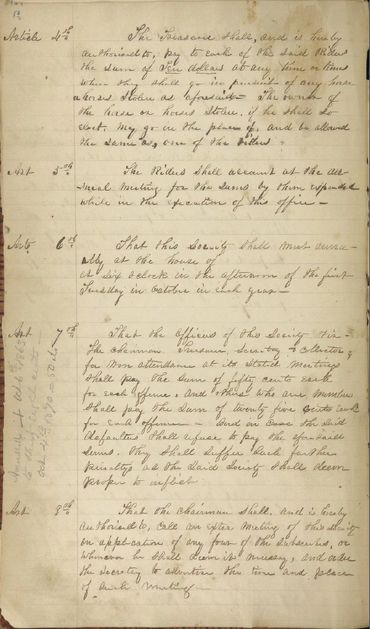 Article 4th The Treasurer shall, and is hereby
authorised to, pay to each of the said Riders
the sum of Ten dollars at any time or times
when they shall go in pursuit of any horse
or horses Stolen as aforesaid - The owner of
the horse or horses Stolen, if he shall so
elect, may go in the place of, and be allowed
the same as, one of the Riders.
Art 5th The Riders Shall account at the an-
nual Meeting for the Sums by them expended
while in the execution of this office -
Art 6th That this Society Shall meet annu-
ally at the house of
at Six O'clock in the afternoon of the first
Tuesday in October in each year -
Art 7th That the Officers of this Society viz -
the Chairman Treasurer, Secretary & Collector,
for non attendance at its Stated Meetings
Shall pay the Sum of fifty cents each
for each offence, and others who are members
Shall pay the Sum of twenty five cents each
for each offence - And in case the said
defaulters Shall refuse to pay the aforesaid
Sums, they Shall suffer such further
penaltys as the said Society Shall deem
proper to inflict
Art 8th That the Chairman Shall, and is hereby
authorised to, call an extra Meeting of this Society
on application of any four of the Subscribers, or
whenever he Shall deem it necessary, and order
the Secretary to advertise the time and place
of such meeting